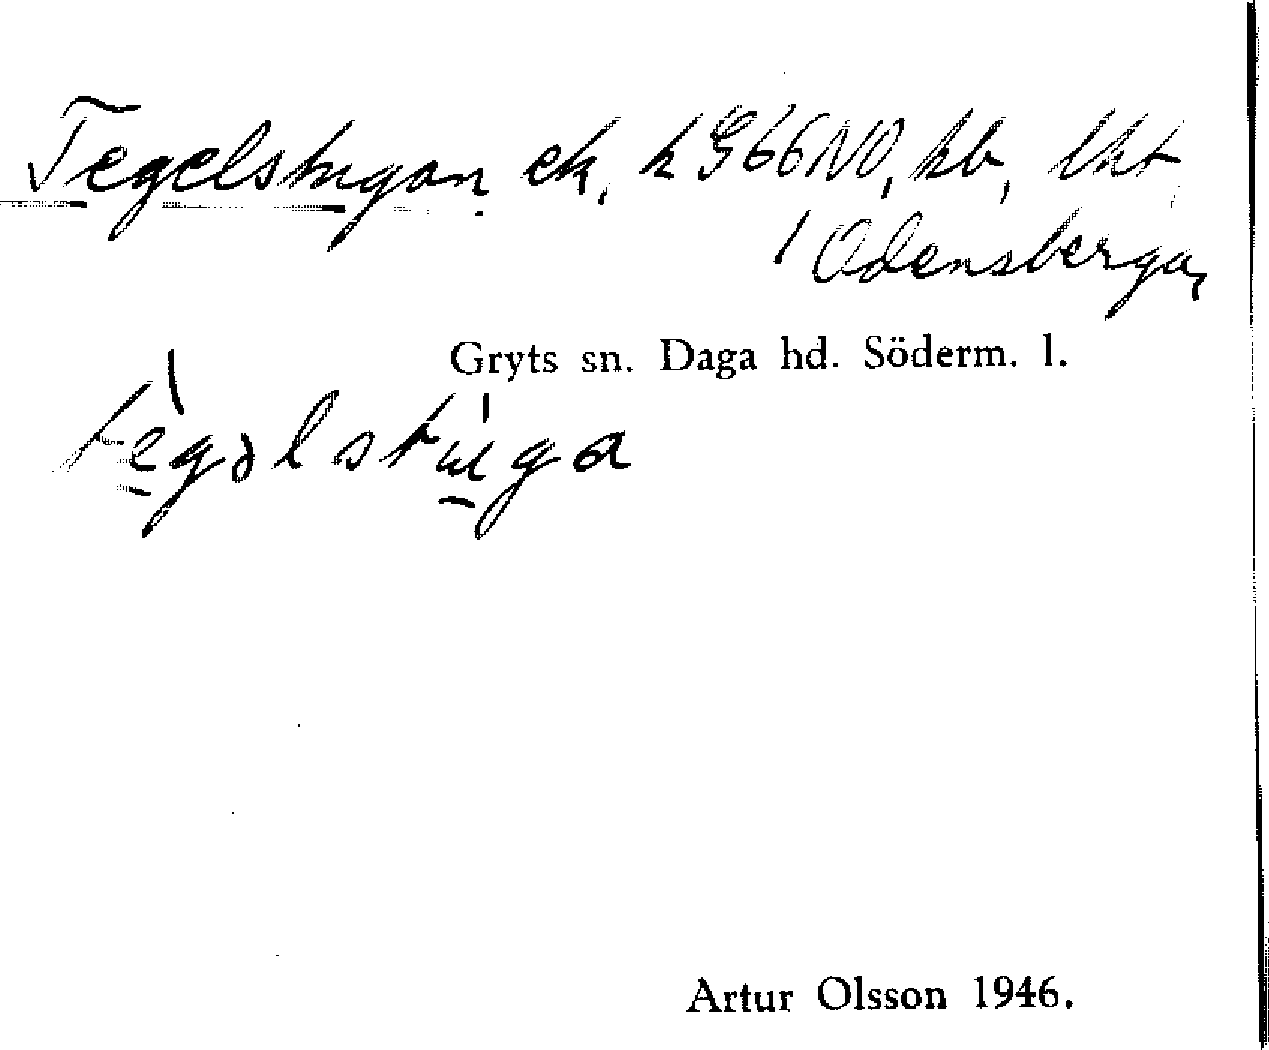 Tegelstugan ek, k G66NO, kb, lht
/ Odensberga,
Gryts sn. Daga hd. Söderm. l.
tègəlstúga
Artur Olsson 1946.